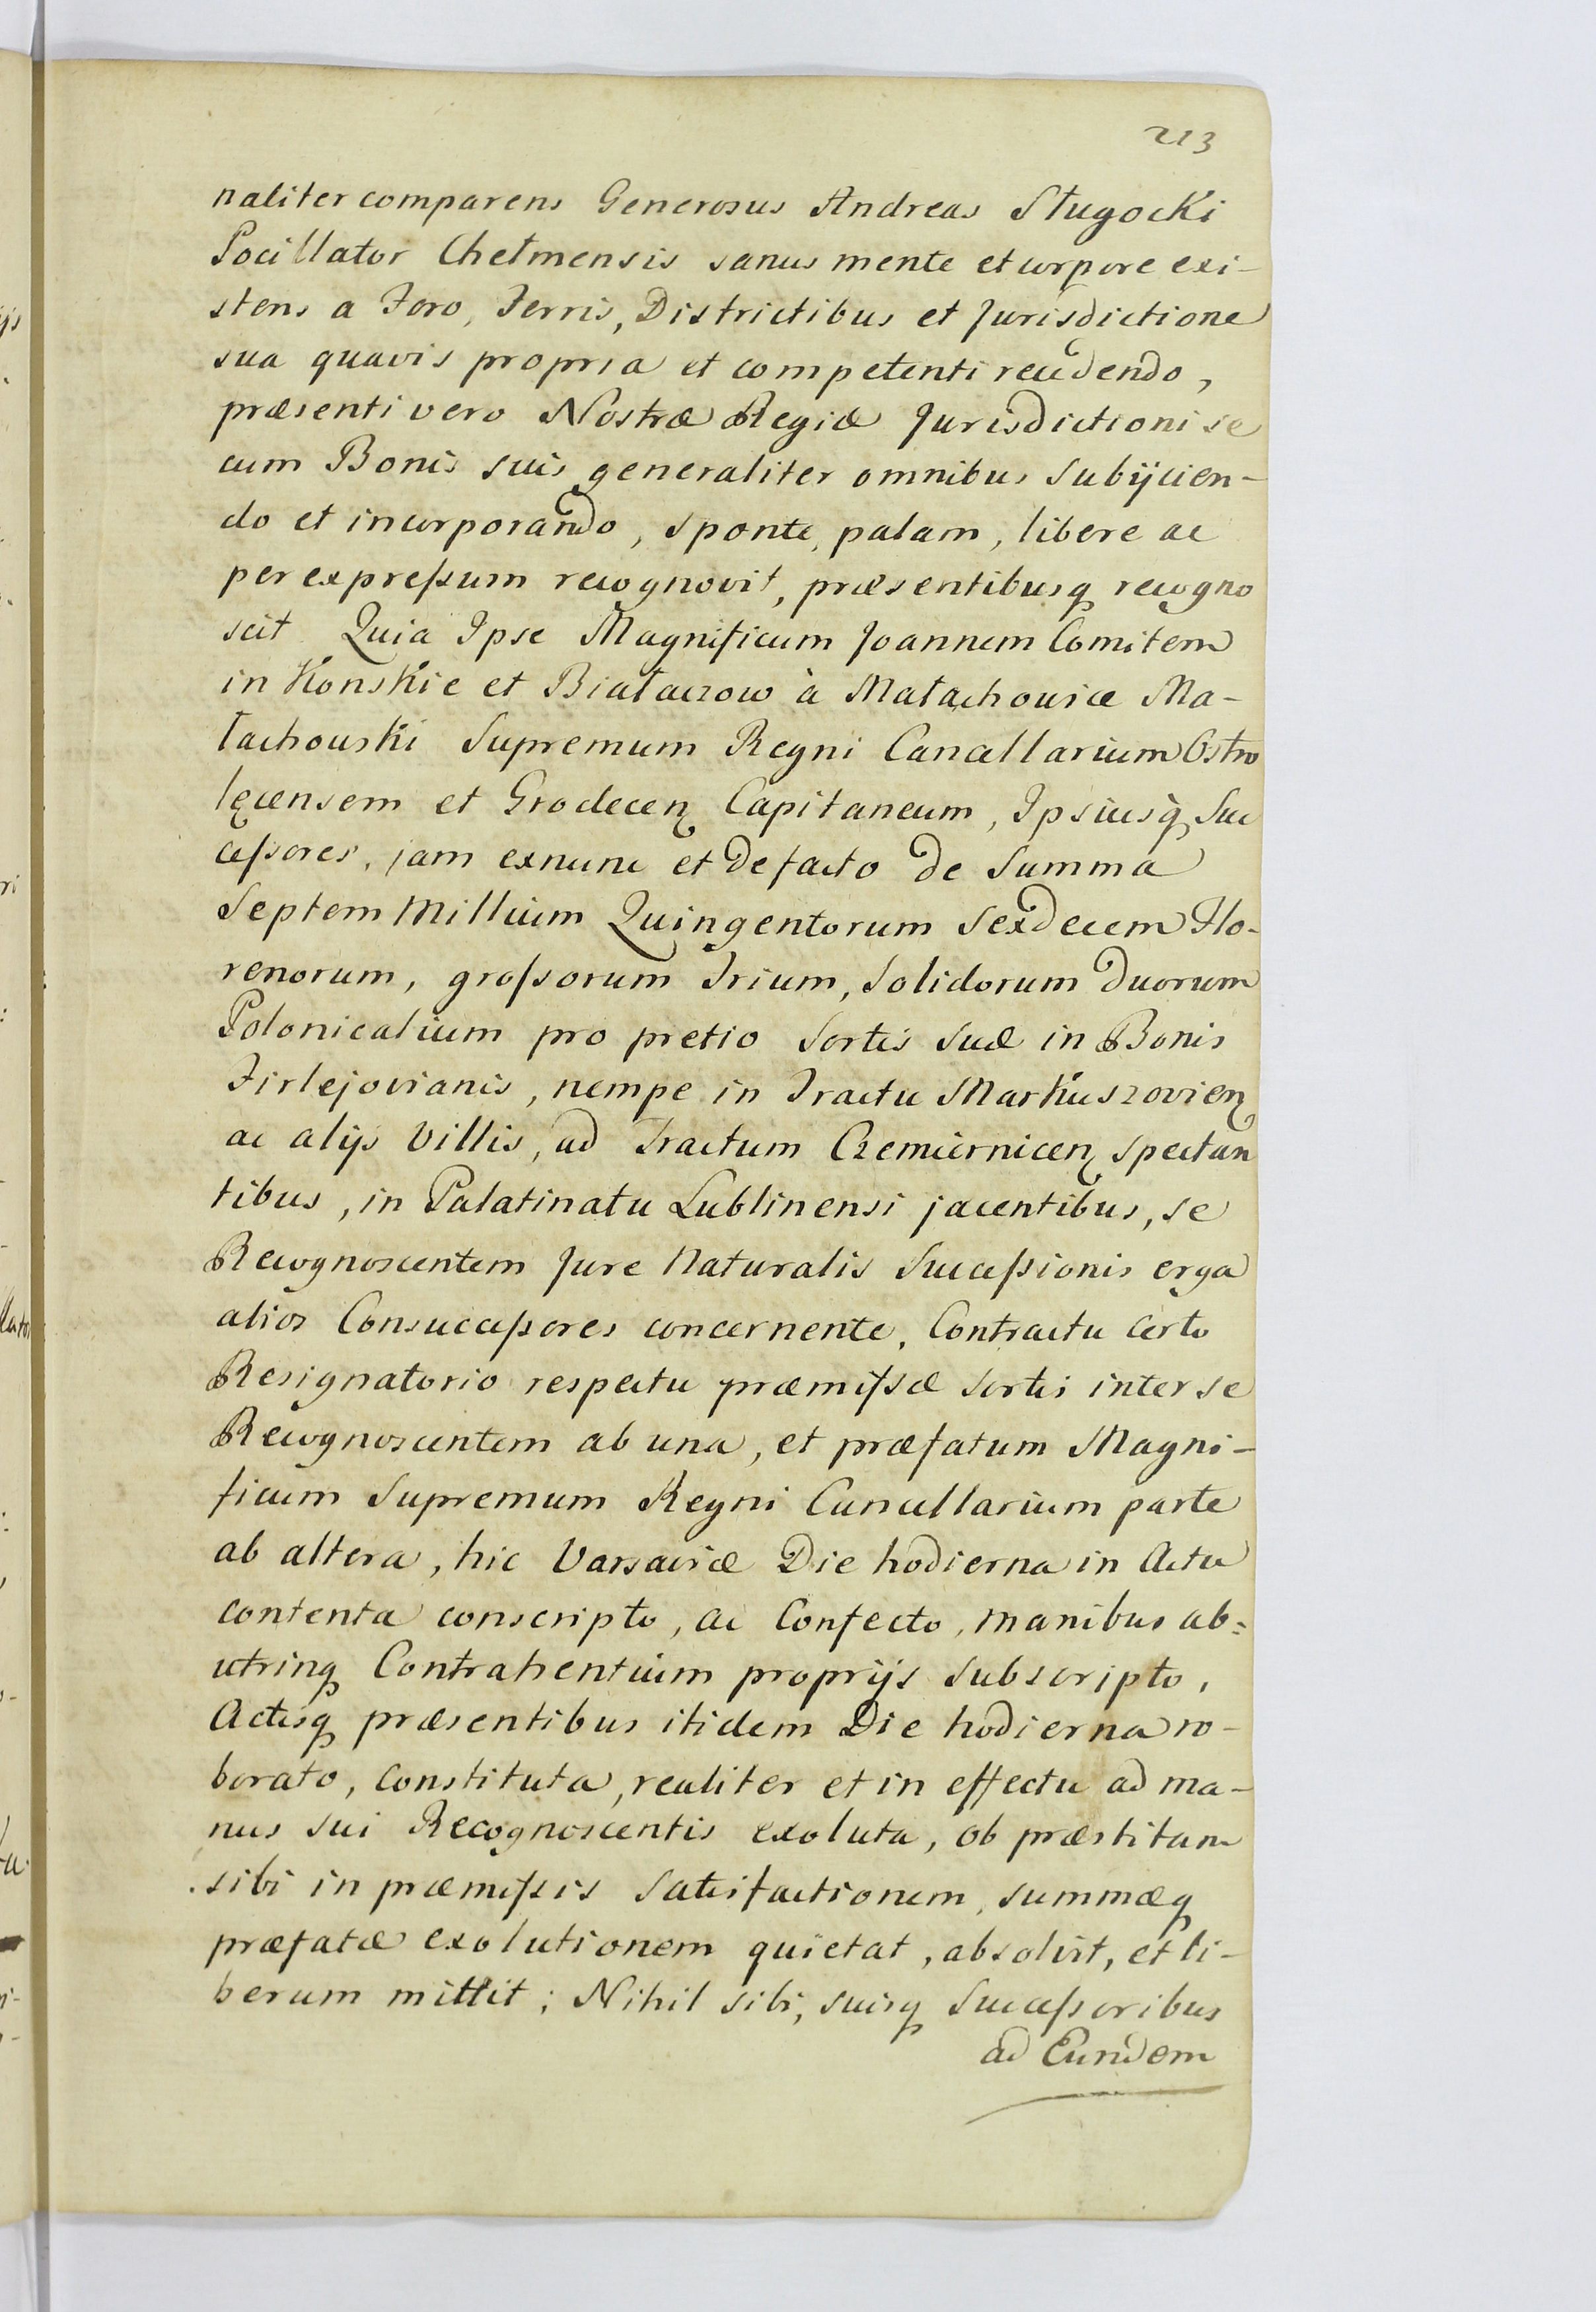 213
naliter comparens Generosus Andreas Sługocki
Pocillator Chełmensis sanus mente et corpore exi-
stens a Foro, Terris, Districtibus et Jurisdictione
sua quavis propria et competenti recedendo,
præsenti vero Nostræ Regiæ Jurisdictioni se
cum Bonis suis generaliter omnibus subijcien-
do et incorporando, sponte, palam, libere ac
per expreſsum recognovit, præsentibusq recogno
scit Quia Ipse Magnificum Joannem Comitem
in Konskie et Białaczow à Małachowice Ma-
łachowski Supremum Regni Cancellarium Ostro
lęcensem et Grodecen Capitaneum, Ipsiusq̀ Suc
ceſsores, jam exnunc et de facto de Summa
Septem Millium Quingentorum Sexdecem Flo-
renorum, groſsorum Trium, Solidorum duorum
Polonicalium pro pretio Sortis Suæ in Bonis
Firlejovianis, nempe in Tractu Markuszovien
ac alijs Villis, ad Tractum Czemiernicen spectan
tibus, in Palatinatu Lublinensi jacentibus, se
Recognoscentem Jure Naturalis Succeſsionis erga
alios Consucceſsores concernente, Contractu certo
Resignatorio respectu præmiſsæ Sortis inter se
Recognoscentem ab una, et præfatum Magni-
ficum Supremum Regni Cancellarium parte
ab altera, hic Varsaviæ Die hodierna in Actu
contenta conscripto, ac Confecto, manibus ab=
utrinq Contrahentium proprijs subscripto,
Actisq præsentibus itidem Die hodierna ro-
borato, constituta, realiter et in effectu ad ma-
nus sui Recognoscentis exoluta, ob præstitam
sibi in præmiſsis Satisfactionem, summæq
præfatæ exolutionem quietat, absolvit, et li-
berum mittit; Nihil sibi, suisq Succeſsoribus
ad Eundem